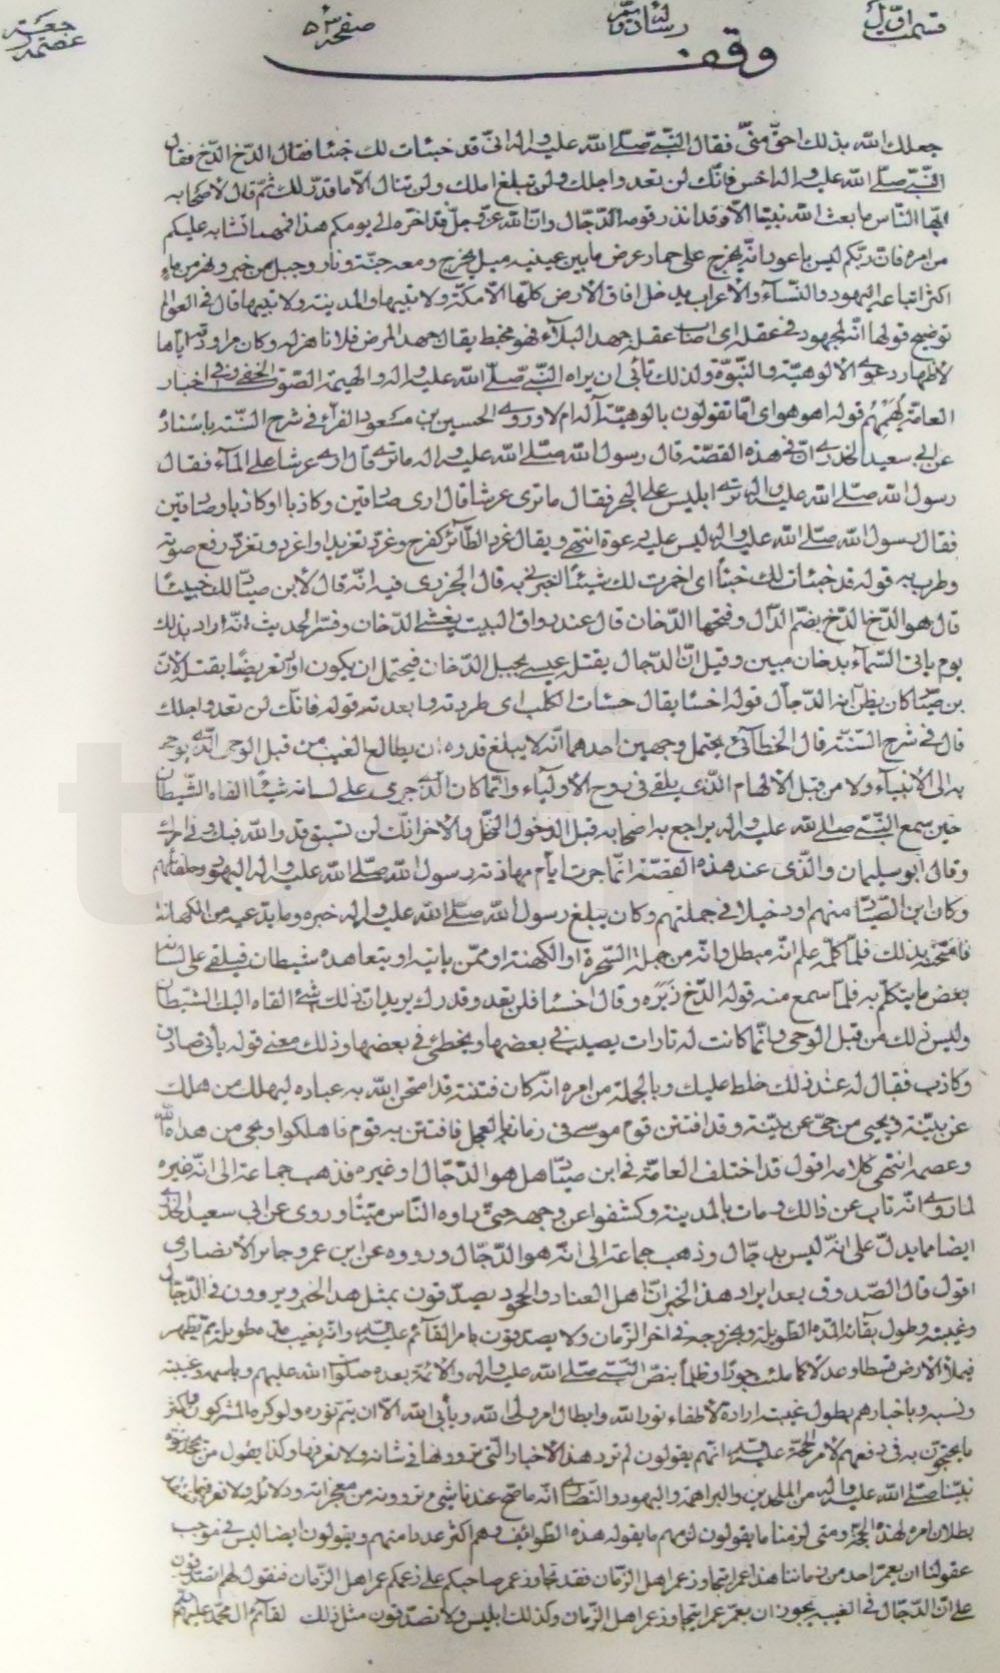 قسمت اوّل
رسالهٔ
صفحه ۵۳
وقف
جعلك الله بذلك احقّ منّي فقال النّبيّ صلّى الله عليه واله انّي قد خبئات لك خبئا فقال الدّخ الدّخ فقال
النّبيّ صلّى الله عليه واله اخس فانّك لن تعدو اجلك ولن تبلغ املك ولن تنال الّا ما قدّر لك ثمّ قال لاصحابه
ايّها النّاس ما بعث الله نبيّا الّا وقد انذر قومه الدّجّال وانّ الله عزّ وجلّ قد اخّره الى يومكم هذا فمهما تشابه عليكم
من امره فانّ ربّكم ليس باعور انّه يخرج على حمار عرض ما بين عينيه ميل يخرج ومعه جنّة ونار وجبل من خبز ونهر من ماء
اكثر اتباعه اليهود والنّساء والاعراب يدخل افاق الارض كلّها الّا مكّة ولا بتيها والمدينة ولا بتيها قال في العوالم
توضيح قولها انّه لمجهود في عقله اى اصاب عقله جهد البلاء فهو مخبط يقال جهد المرض فلانا هزله وكان مراودته اياها
لاظهار دعوى الالوهيّة والنّبوّة ولذلك تأبى ان يراه النّبيّ صلّى الله عليه واله والهينمة الصّوت الخفي وفي اخبار
العامّة يهمهم قوله اهو هو اى امّا تقولون بالوهيّة اله ام لا وروى الحسين بن مسعود الفرّاء في شرح السّنّة باسناده
عن ابي سعيد الخدرى انّ في هذه القصّة قال رسول الله صلّى الله عليه واله ما ترى قال ارى عرشا على الماء فقال
رسول الله صلّى الله عليه واله ترى ابليس على البحر فقال ما ترى عرشا قال ارى صادقين وكاذبا او كاذبا وصادقين
فقال رسول الله صلّى الله عليه واله لبس عليه دعوه انتهى ويقال غرد الطّائر كفرح وغرّد تغريدا واغرد وتغرّد رفع صوته
وطرب به قوله قد خبئات لك خبئا اى اخمرت لك شيئا اخبرني به قال الجزرى فيه انّه قال لابن صيّاد خبئت لك خبيئا
قال هو الدّخ الدّخ بضمّ الدّال وفتحها الدّخان قال عند رواق البيت يغشى الدّخان وفسّر الحديث انّه اراد بذلك
يوم ياتي السّماء بدخان مبين وقيل انّ الدّجال يقتله عيسى بجبل الدّخان فيحتمل ان يكون اراد تعريضا بقتله لانّ
بن صيّاد كان يظنّ انّه الدّجال قوله اخسا يقال خسات الكلب اى طردته وابعدته قوله فانّك لن تعدو اجلك
قال في شرح السّنّة قال الخطّابي يحتمل وجهين احدهما انّه لا يبلغ قدره ان يطالع الغيب من قبل الوحى الّذى يوحى
به الى الانبياء ولا من قبل الالهام الّذى يلقى في روح الاولياء وانّما كان الّذى جرى على لسانه شيئا القاه الشّيطان
حين سمع النّبيّ صلى الله عليه واله يراجع به اصحابه قبل الدخول النّخل والاخر انّك لن تسبق قدر الله فيك وفي امرك
وقال ابو سليمان والّذى عند هذه القصّة انّما جرت ايّام مهادنة رسول الله صلّى الله عليه واله اليهود وحلفائهم
وكان ابن الصّيّاد منهم او دخيلا في جملتهم وكان يبلغ رسول الله صلّى الله عليه واله خبره وما يدّعيه من الكهانة
فامتحنه بذلك فلمّا كلّمه علم انّه مبطل وانّه من جملة السّحرة او الكهنة او ممّن ياتيه او يتعاهده شيطان فيلقى على لسانه
بعض ما يتكلّم به فلمّا سمع منه قوله الدّخ زبره وقال اخسا فلن تعد وقدرك يريد انّ ذلك شيء القاه اليك الشّيطان
وليس ذلك من قبل الوحى وانّما كانت له تارات يصيب في بعضها ويخطئ في بعضها وذلك معنى قوله يأتي صادق
وكاذب فقال له عند ذلك خلط عليك وبالجملة من امره انّه كان فتنة قد امتحن الله به عباده ليهلك من هلك
عن بيّنة ويحيى من حيّ عن بيّنة وقد افتتن قوم موسى في زمانه بالعجل فافتتن به قوم فاهلكوا ونجى من هداه الله
وعصمه انتهى كلامه اقول قد اختلف العامّة في ابن صيّاد هل هو الدّجّال او غيره فذهب جماعة الى انّه غيره
لما روى انّه تاب عن ذالك ومات بالمدينة وكشفوا عن وجهه حتّى راوه النّاس ميّتا وروى عن ابي سعيد الخدرى
ايضا ما يدلّ على انّه ليس بدجّال وذهب جماعة الى انّه هو الدّجّال ورووه عن ابن عمر وجابر الانصارى
اقول قال الصّدوق بعد ايراد هذا الخبر انّ اهل العناد والجحود يصدّقون بمثل هذا الخبر ويروون في الدّجّال
وغيبته وطول بقائه المدّة الطّويلة وبخروجه في آخر الزّمان ولا يصدّقون بامر القائم عليه السلام وانّه يغيب مدّة طويلة ثمّ يظهر
فيملأ الارض قسطا وعدلا كما ملئت جورا وظلما بنصّ النّبيّ صلّى الله عليه واله والائمّة بعده صلوات الله عليهم وباسمه وغيبته
ونسبه وباخبارهم بطول غيبته ارادة لاطفاء نور الله وابطال امر وليّ الله ويأبى الله الّا ان يتمّ نوره ولو كره المشركون واكثر
ما يحتجّون به في دفعهم لامر الحجّة عليه السلام انّهم يقولون لم ترد هذه الاخبار الّتي تروونها في شانه ولا نعرفها وكذا يقول من يجحد نبوّة
نبيّنا صلّى الله عليه واله من الملحدين والبراهمة واليهود والنّصارى انّه ما صحّ عندنا شيء تروونه من معجزاته ودلائله ولا نعرفها فنعتقد
بطلان امره لهذه الجهة ومتى لزمنا ما يقولون لزمهم ما يقوله هذه الطّوائف وهم اكثر عددا منهم ويقولون ايضا ليس في موجب
عقولنا ان يعمّر احد من زماننا هذا عمرا يتجاوز عمر اهل الزّمان فقد تجاوز عمر صاحبكم على زعمكم عمر اهل الزّمان فنقول لهم اتصدّقون
على انّ الدّجّال في الغيبة يجوز ان يعمّر عمرا يتجاوز عمر اهل الزّمان وكذلك ابليس ولا تصدّقون مثل ذلك لقائم ال محمّد عليهم